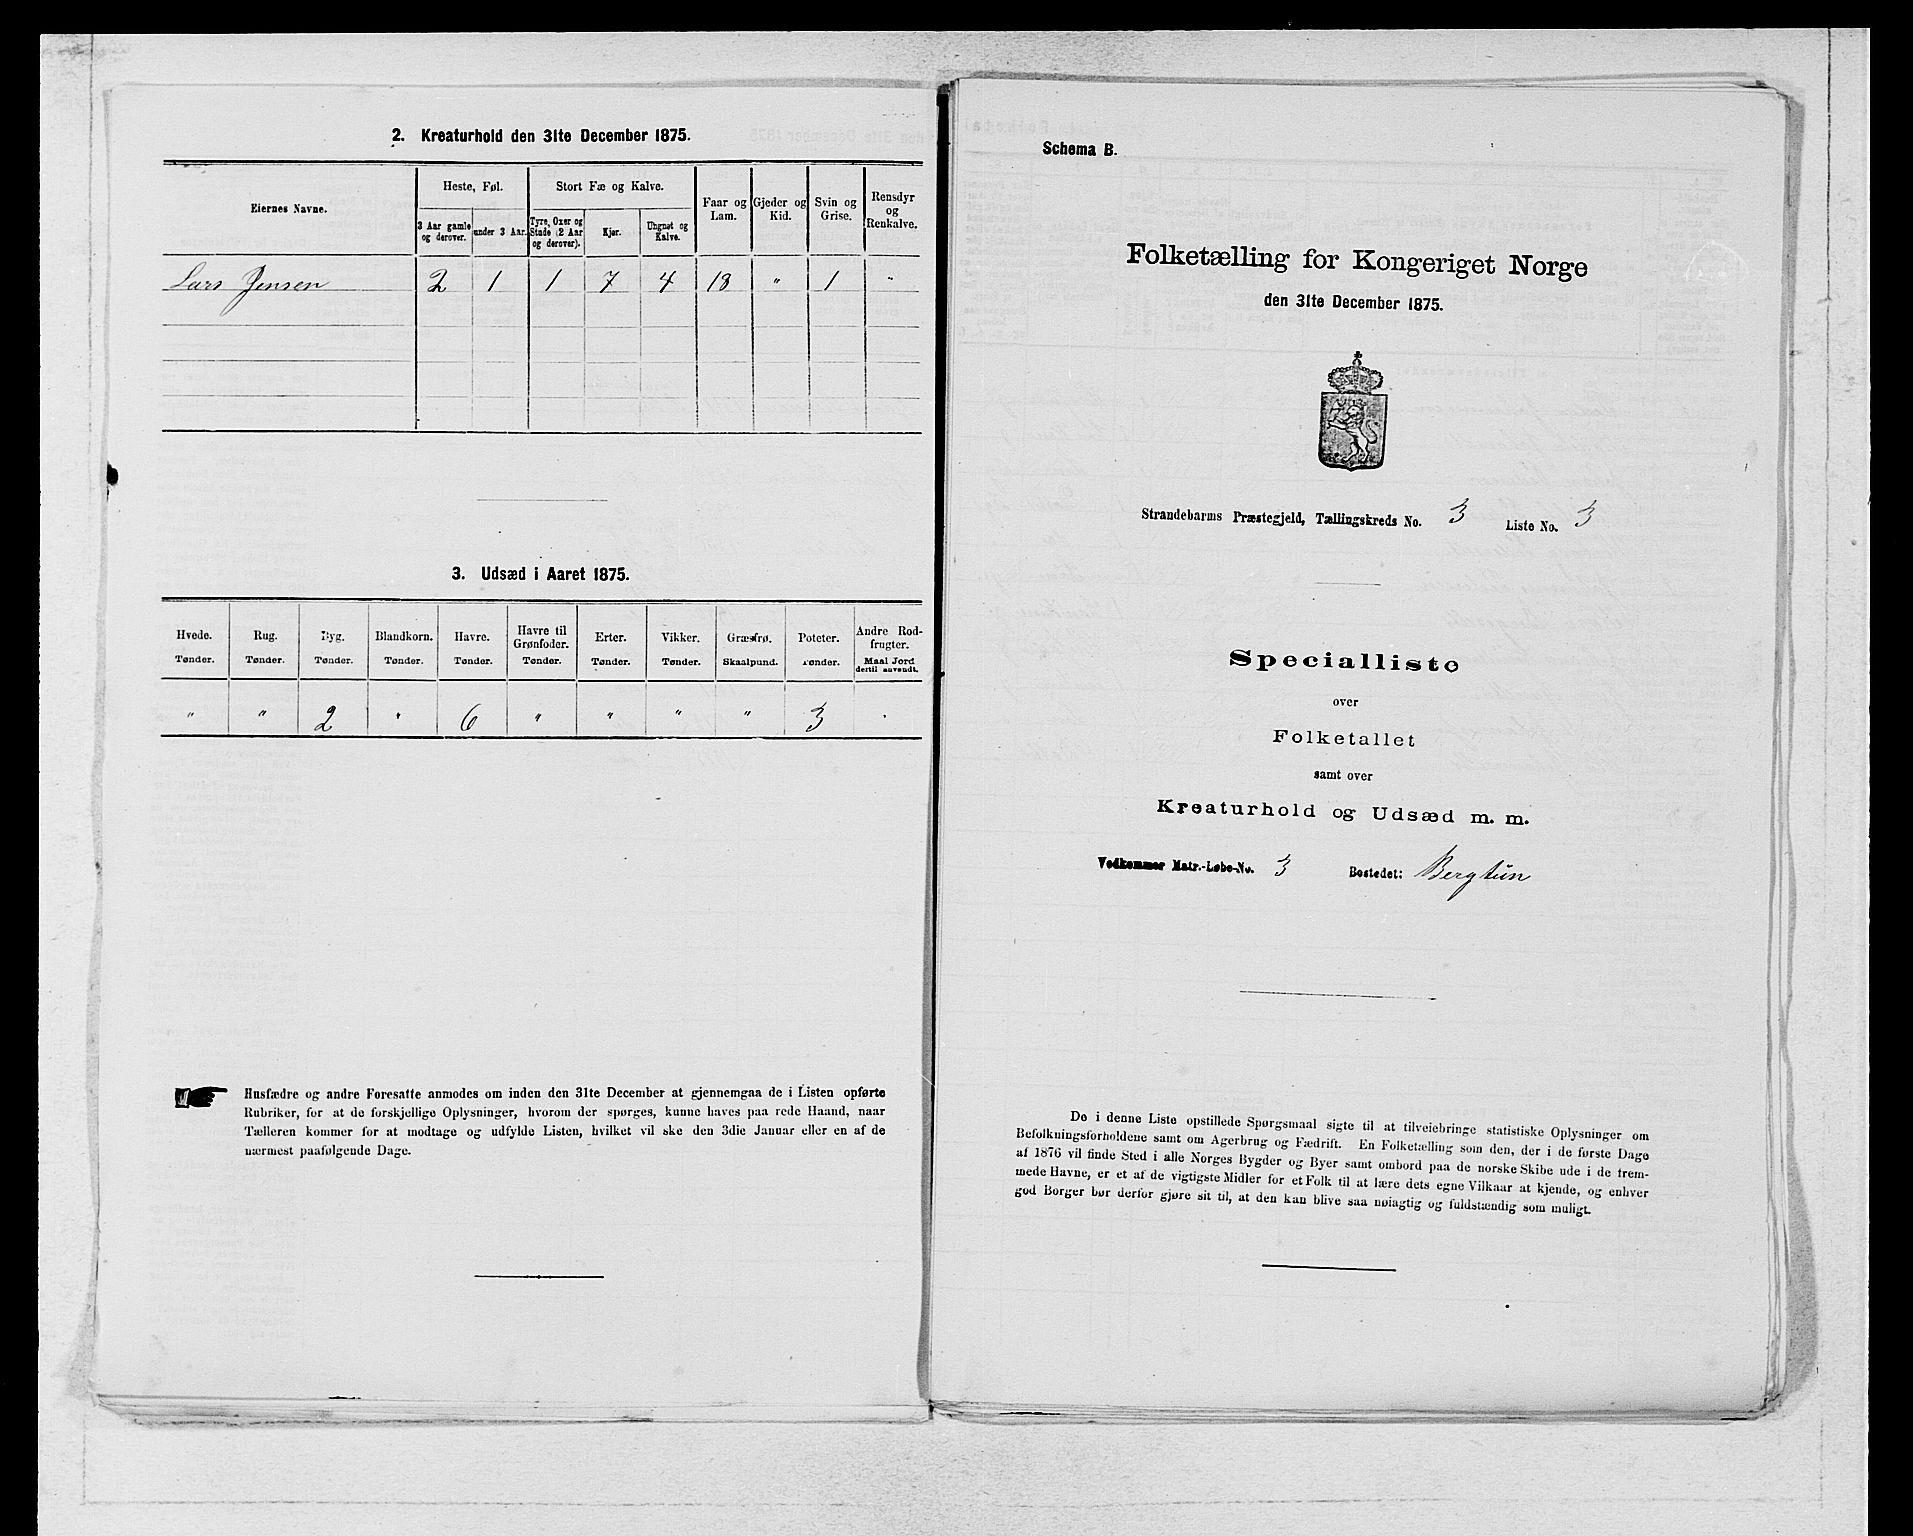 2. Kreaturhold den 31te December 1875.
Eiernes Navne.
Heste, Føl.
Stort Fæ og Kalve.
Faar og Lam.
Gjeder og Kid.
Svin og Grise.
Rensdyr og Renkalve.
3 Aar gamle og derover.
under 3 Aar.
Tyre, Oxer og Stude (2 Aar og derover).
Kjør.
Ungnøt og Kalve.
Lars Jensen 2 1 1 7 4 18 " 1 "
3. Udsæd i Aaret 1875.
Hvede. Rug. Byg. Blandkorn. Havre. Havre til Grønfoder. Erter. Vikker. Græsfrø. Poteter. Andre Rodfrugter.
Tønder. Tønder. Tønder. Tønder. Tønder. Tønder. Tønder. Tønder. Skaalpund. Tønder. Maal Jord dertil anvendt.
" " 2 " 6 " " " " 3 "
Husfædre og andre Foresatte anmodes om inden den 31te December at gjennemgaa de i Listen opførte
Rubriker, for at de forskjellige Oplysninger, hvorom der spørges, kunne haves paa rede Haand, naar
Tælleren kommer for at modtage og udfylde Listen, hvilket vil ske den 3die Januar eller en af de
nærmest paafølgende Dage.
Schema B.
Folketælling for Kongeriget Norge
den 31te December 1875.
Strandebarms Præstegjeld, Tællingskreds No. 3 Liste No. 3
Specialliste
over
Folketallet
samt over
Kreaturhold og Udsæd m. m.
Vedkommer Matr.-Løbe-No. 3 Bostedet: Bergtun
De i denne Liste opstillede Spørgsmaal sigte til at tilveiebringe statistiske Oplysninger om
Befolkningsforholdene samt om Agerbrug og Fædrift. En Folketælling som den, der i de første Dage
af 1876 vil finde Sted i alle Norges Bygder og Byer samt ombord paa de norske Skibe ude i de frem-
mede Havne, er et af de vigtigste Midler for et Folk til at lære dets egne Vilkaar at kjende, og enhver
god Borger bør derfor gjøre sit til, at den kan blive saa nøiagtig og fuldstændig som muligt.